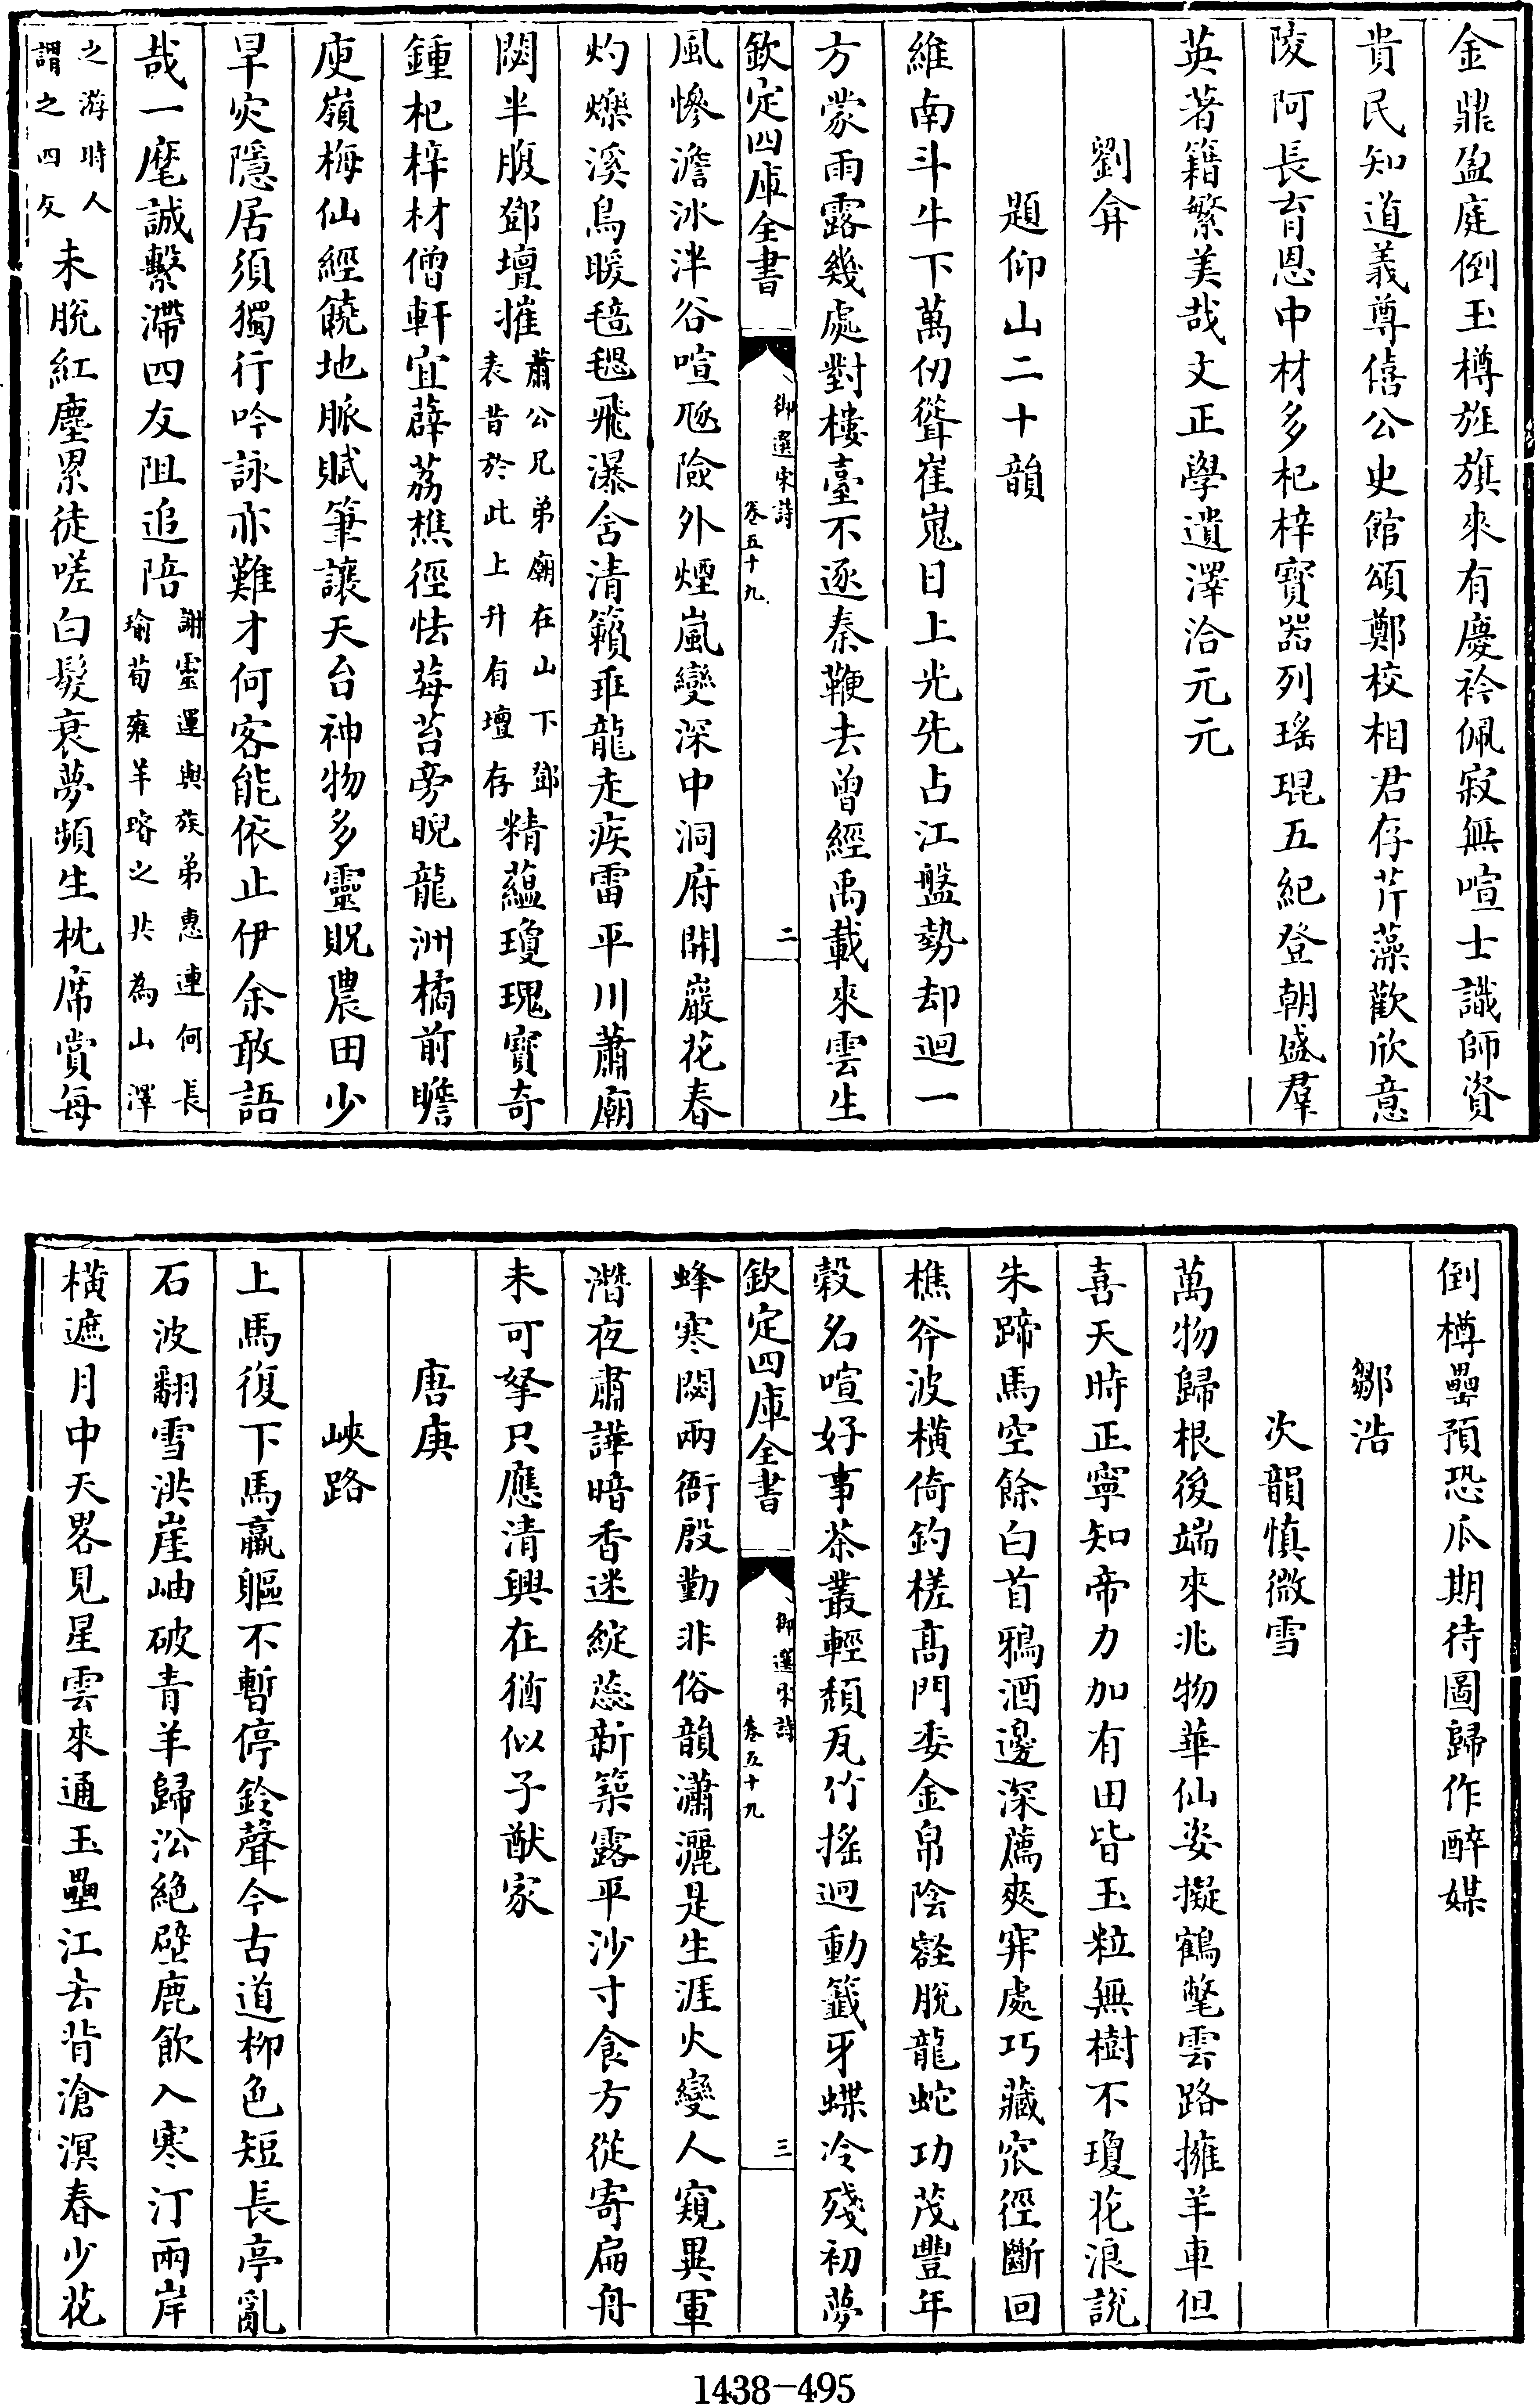 金鼎盈庭倒玉樽旌旗來有慶衿佩寂無喧士識師資
貴民知道義尊僖公史館頌鄭校相君存芹藻歡欣意
陵阿長育恩中材多杞梓寶器列瑤琨五紀登朝盛羣
英著籍繁美哉文正學遺澤洽元元
劉弇
題仰山二十韻
維南斗牛下萬仞聳崔嵬日上光先占江盤勢却迴一
方蒙雨露幾處對樓臺不逐秦鞭去曾經禹載來雲生
欽定四庫全書
御選宋詩
卷五十九
二
風慘澹冰泮谷喧豗險外煙嵐變深中洞府開巖花春
灼爍溪鳥暖毰毸飛瀑舍清籟乖龍走疾雷平川蕭廟
閟半腹鄧壇摧蕭公兄弟廟在山下鄧表昔於此上升有壇存精蘊瓊瑰寶奇
鍾杞梓材僧軒宜薜荔樵徑怯莓苔旁睨龍洲橘前瞻
庾嶺梅仙經饒地脈賦筆讓天台神物多靈貺農田少
旱灾隱居須獨行吟詠亦難才何客能依止伊余敢語
哉一麾誠繫滯四友阻追陪謝靈運與族弟惠連何長瑜荀雍羊璿之共為山澤
之游時人謂之四友未脫紅塵累徒嗟白髮衰夢頻生枕席賞每
倒樽罍預恐瓜期待圖歸作醉媒
鄒浩
次韻慎微雪
萬物歸根後端來兆物華仙姿擬鶴氅雲路擁羊車但
喜天時正寧知帝力加有田皆玉粒無樹不瓊花浪說
朱蹄馬空餘白首鴉酒邊深薦爽穽處巧藏窊徑斷回
樵斧波橫倚釣槎髙門委金帛陰壑脫龍蛇功茂豐年
穀名喧好事茶叢輕頽瓦竹搖迥動籤牙蝶冷殘初夢
欽定四庫全書
御選宋詩
卷五十九
三
蜂寒閟兩衙殷勤非俗韻瀟灑是生涯火變人窺異軍
潛夜肅譁暗香迷綻蘂新築露平沙寸食方從寄扁舟
未可拏只應清興在猶似子猷家
唐庚
峽路
上馬復下馬羸軀不暫停鈴聲今古道柳色短長亭亂
石波翻雪洪崖岫破青羊歸㳂絕壁鹿飲入寒汀兩岸
橫遮月中天畧見星雲來通玉壘江去背滄溟春少花
1438-495